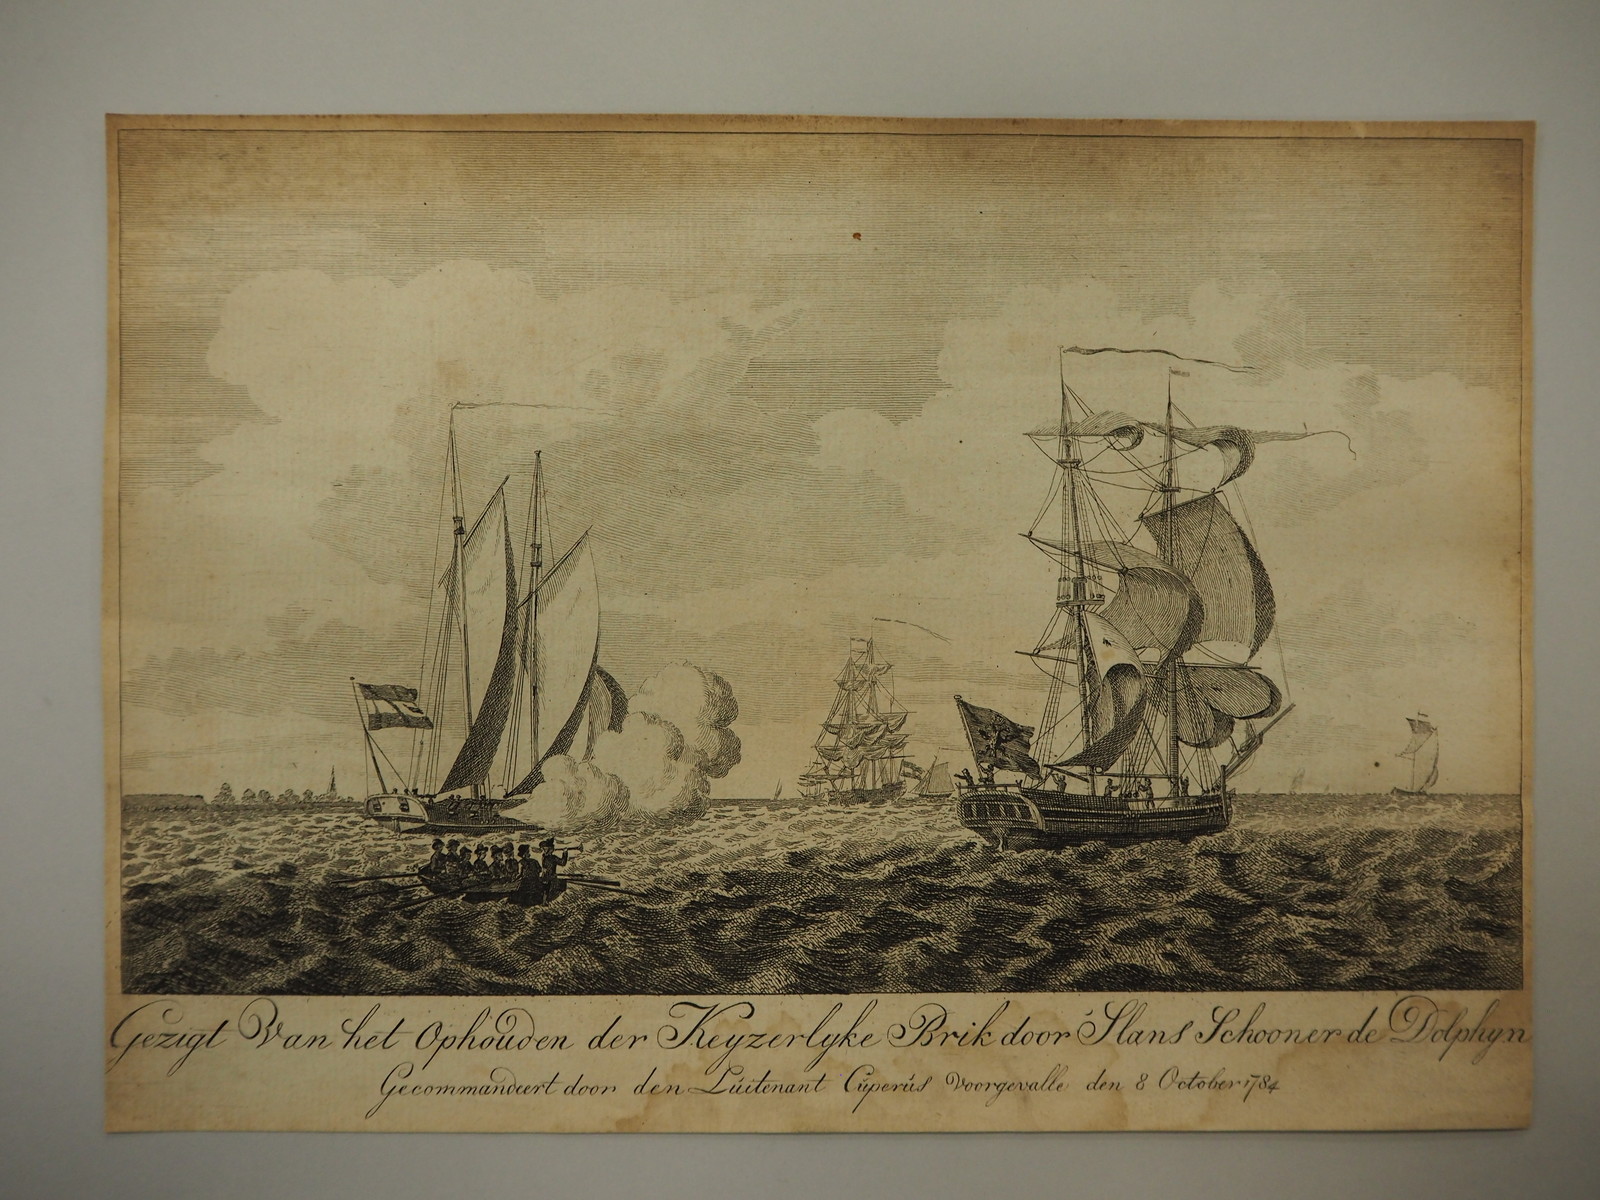 Gezigt Van het Ophouden der Keyzerlyke Brik door 's Lans Schooner de Dolphyn
Gecommandeert door den Luitenant Cuperus Voorgevalle den 8 October 1784